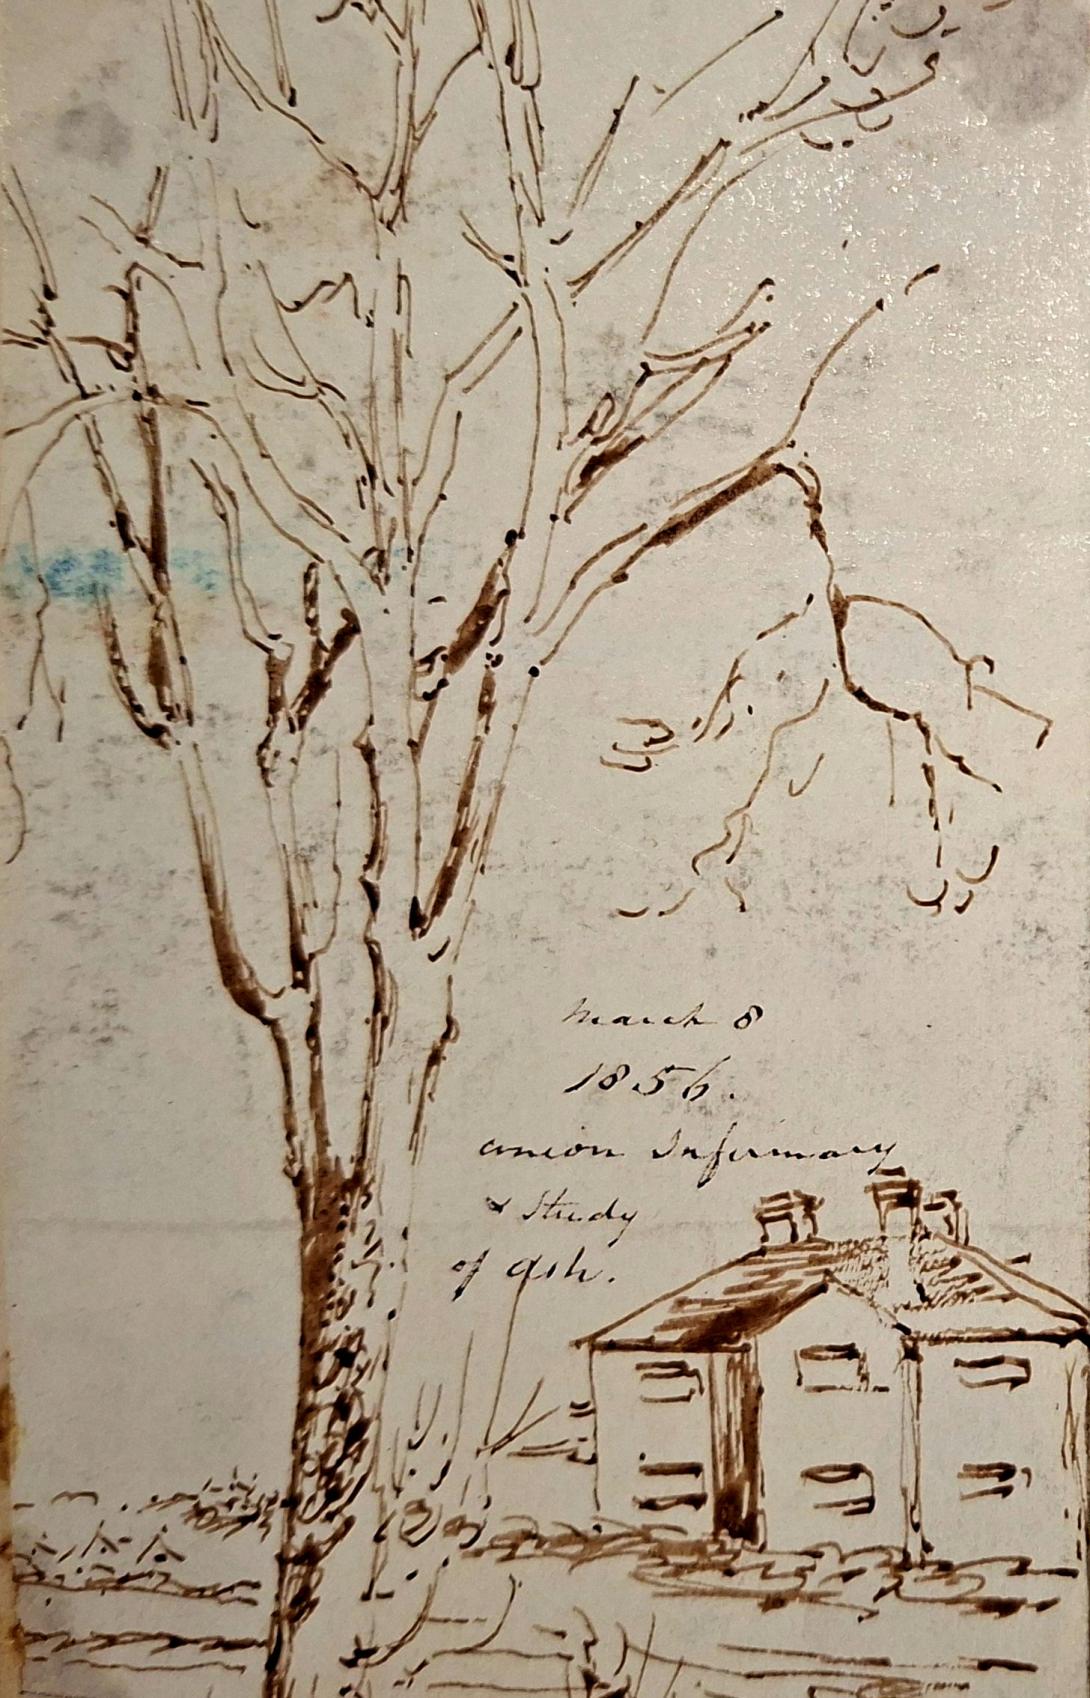 March 8
1856.
Union Infirmary
& Study
of Ash.